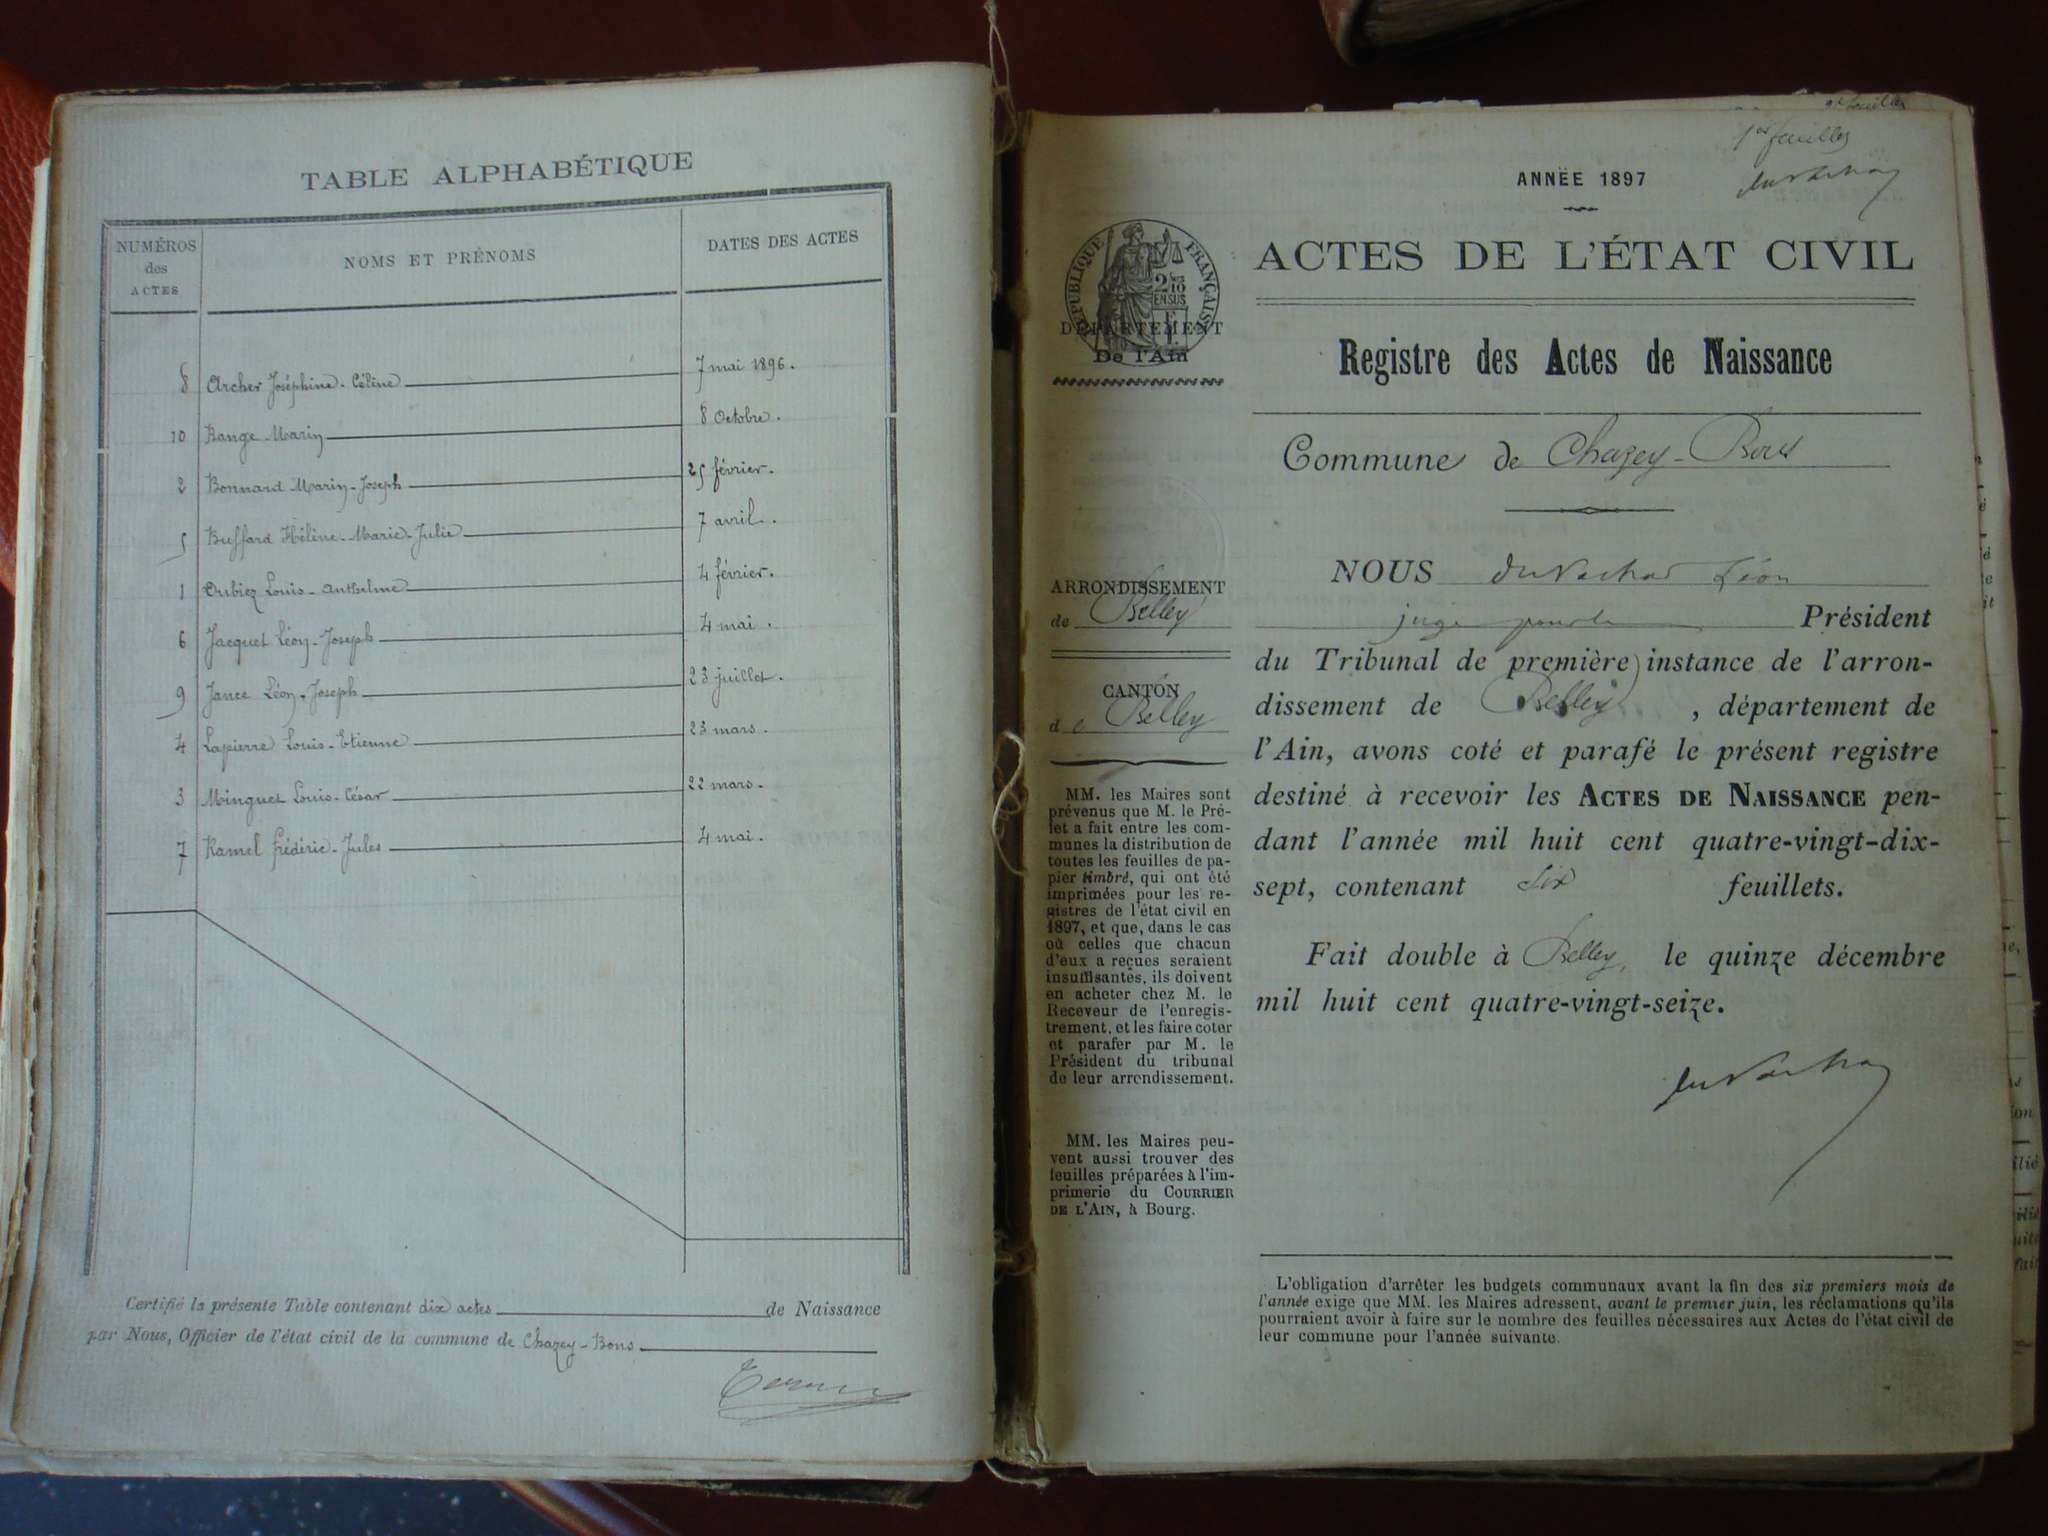 TABLE ALPHABÉTIQUE
NUMÉROS
des
ACTES
NOMS ET PRÉNOMS
DATES DES ACTES
8 Archer Joséphine-Céline 7 mai 1896.
10 Bange Marin 8 Octobre.
2 Bonnard Marin-Joseph 25 février.
5 Buffard Hélène-Marie-Julie 7 avril.
1 Dubiez Louis-Anthelme 4 février.
6 Jacquet Léon-Joseph 4 mai.
9 Jance Léon-Joseph 23 juillet.
4 Lapierre Louis-Etienne 23 mars.
3 Minguet Louis-César 22 mars.
7 Ramel Frédéric-Jules 4 mai.
Certifié la présente Table contenant dix actes de Naissance
par Nous, Officier de l'état civil de la commune de Chazey-Bons
1er feuillet
ANNÉE 1897
RÉPUBLIQUE FRANÇAISE
2/10
EN SUS
DÉPARTEMENT
De l'Ain
ACTES DE L'ÉTAT CIVIL
Registre des Actes de Naissance
Commune de Chazey-Bons
ARRONDISSEMENT
de Belley
CANTON
de Belley
MM. les Maires sont
prévenus que M. le Pré-
fet a fait entre les com-
munes la distribution de
toutes les feuilles de pa-
pier timbré, qui ont été
imprimées pour les re-
gistres de l'état civil en
1897, et que, dans le cas
où celles que chacun
d'eux a reçues seraient
insuffisantes, ils doivent
en acheter chez M. le
Receveur de l'enregis-
trement, et les faire coter
et parafer par M. le
Président du tribunal
de leur arrondissement.
MM. les Maires peu-
vent aussi trouver des
feuilles préparées à l'im-
primerie du COURRIER
DE L'AIN, à Bourg.
NOUS Léon
juge pour le Président
du Tribunal de première instance de l'arron-
dissement de Belley, département de
l'Ain, avons coté et parafé le présent registre
destiné à recevoir les ACTES DE NAISSANCE pen-
dant l'année mil huit cent quatre-vingt-dix-
sept, contenant six feuillets.
Fait double à Belley, le quinze décembre
mil huit cent quatre-vingt-seize.
L'obligation d'arrêter les budgets communaux avant la fin des six premiers mois de
l'année exige que MM. les Maires adressent, avant le premier juin, les réclamations qu'ils
pourraient avoir à faire sur le nombre des feuilles nécessaires aux Actes de l'état civil de
leur commune pour l'année suivante.